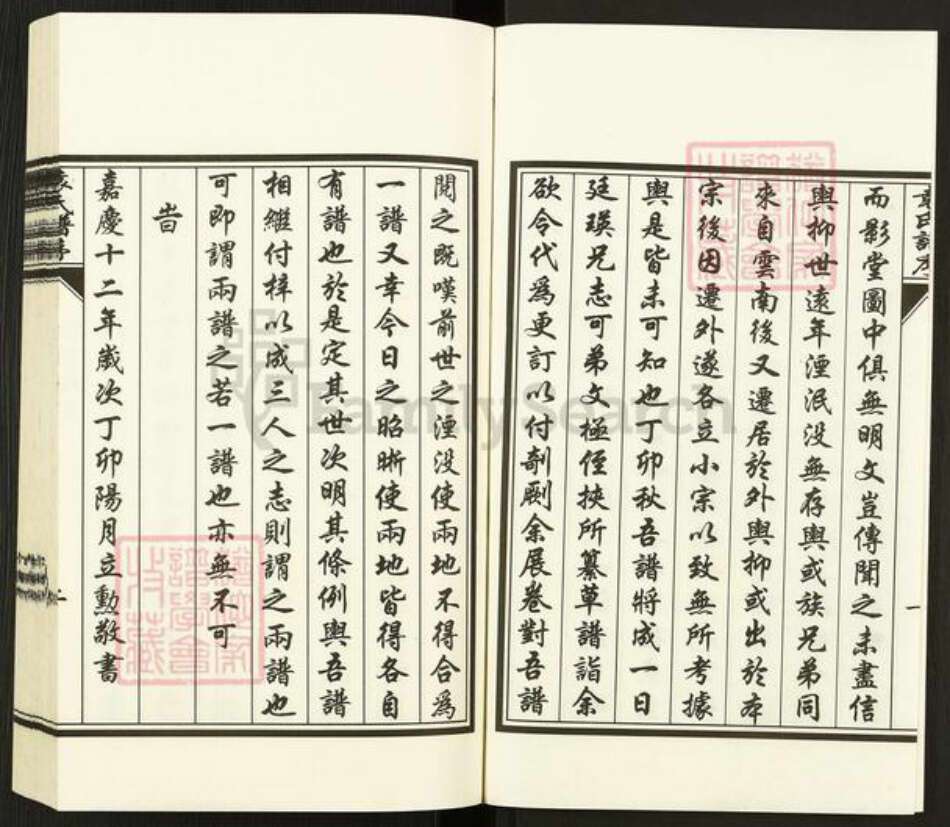 而影堂圖中俱無明文豈傳聞之未盡信
輿抑世遠年湮泯没無存輿或族兄弟同
來自雲南後又遷居於外輿抑或出於本
宗後因遷外遂各立小宗以致無所考據
輿是皆未可知也丁卯秋吾譜將成一日
廷瑛兄志可弟文極侄挾所纂草譜詣余
欲令代為更訂以付剞劂余展卷對吾譜
一
閱之既嘆前世之湮没使兩地不得合為
一譜又幸今日之昭晰使兩地皆得各自
有譜也於是定其世次明其條例與吾譜
相繼付梓以成三人之志則謂之兩譜也
可即謂兩譜之若一譜也亦無不可
旹
嘉慶十二年歲次丁卯陽月立勳敬書
FamilySearch